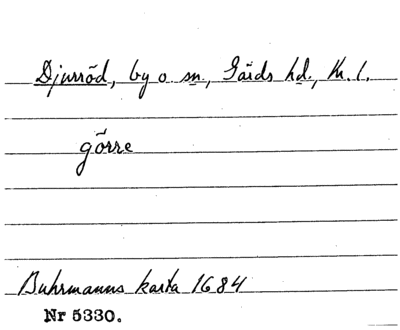 Djurröd, by o sn., Gärds hd., Kr. l.
görre
Buhrmanns karta 1684
Nr 5330.